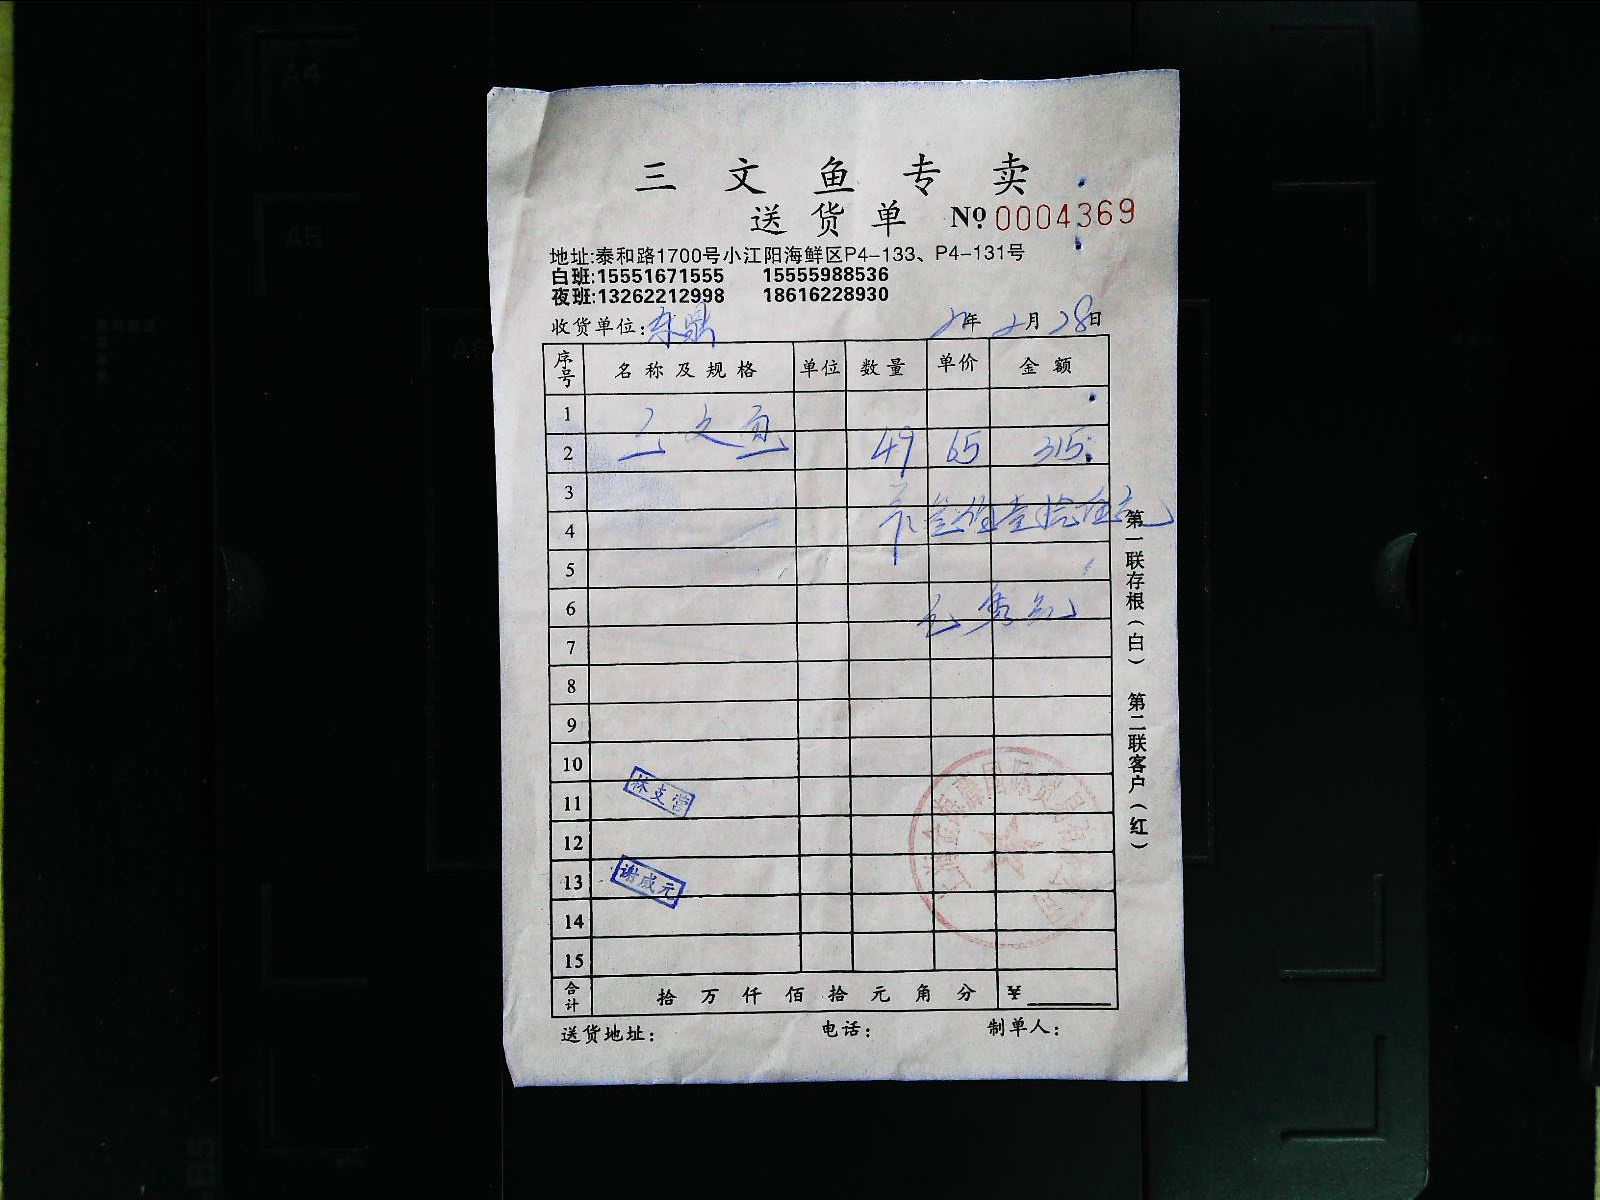 三文鱼专卖
送货单 № 0004369
地址:泰和路1700号小江阳海鲜区P4-133、P4-131号
白班:15551671555 15555988536
夜班:13262212998 18616228930
收货单位: 东鼎 21年2月28日
序号 名称及规格 单位 数量 单价 金额
1
2 三文鱼 49 65 315
3
4 叁佰壹拾伍元
5
6
7
8
9
10
11 林支营
12
13 谢咸元
14
15
合计 拾万仟佰拾元角分 ¥
送货地址: 电话: 制单人:
第一联存根(白) 第二联客户(红)